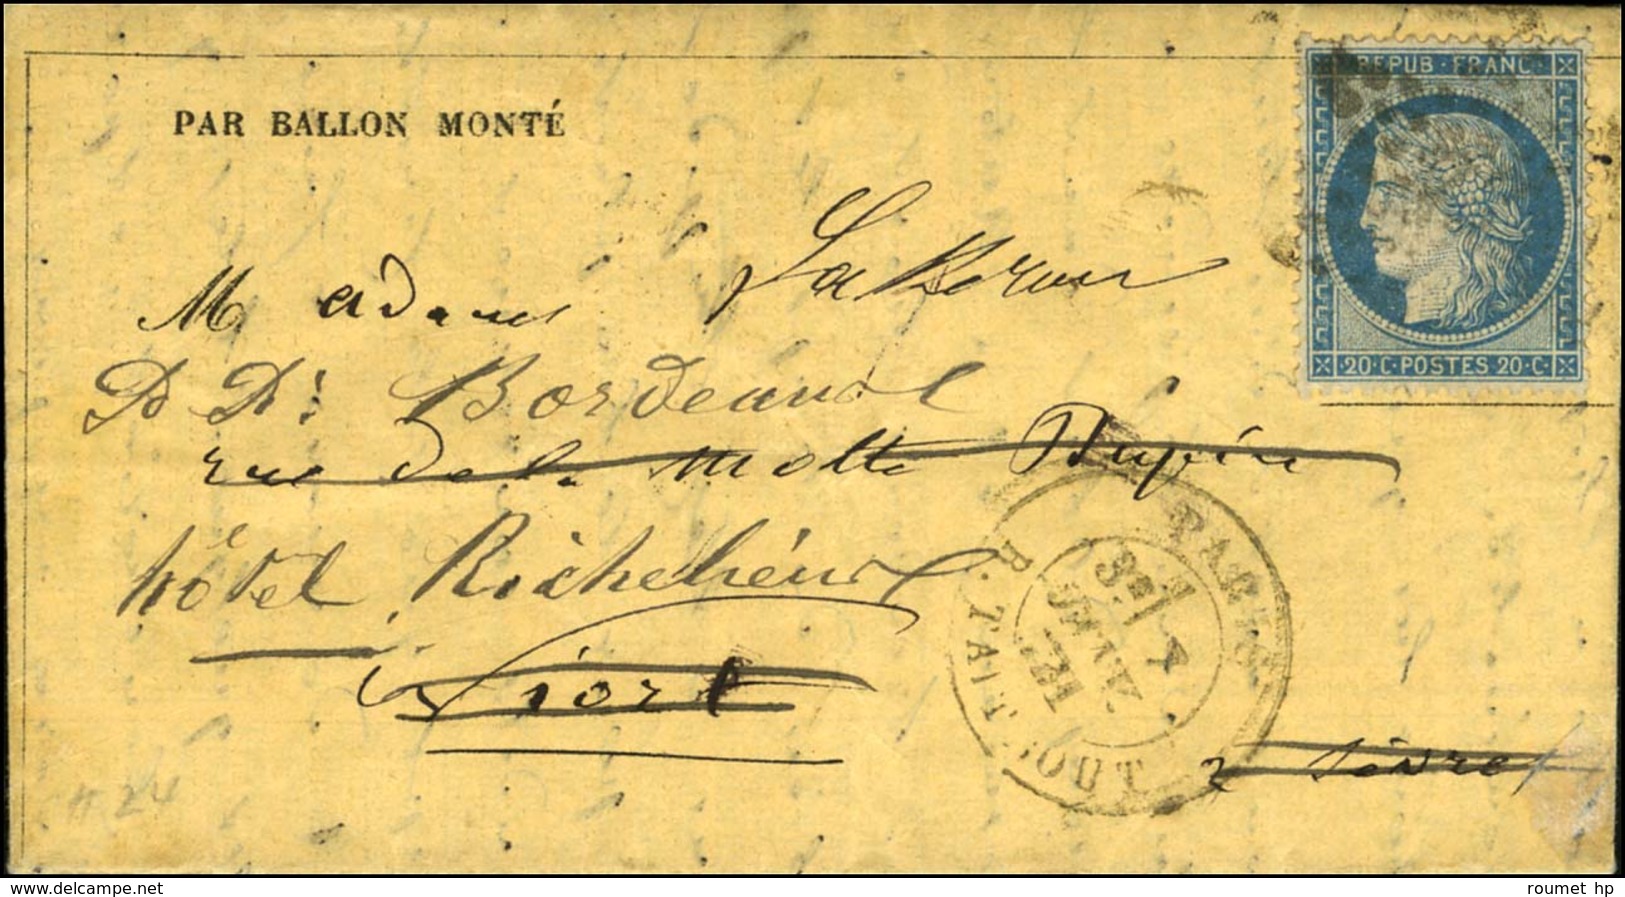 REPUB · FRANC
PAR BALLON MONTÉ
Madame
Bordeaux
rue de la Motte
hôtel Richelieu
à Niort
20 · C · POSTES 20 · C ·
PARIS
R. TAITBOUT
JANV.
2 Sèvres
#24
www.delcampe.net
roumet hp